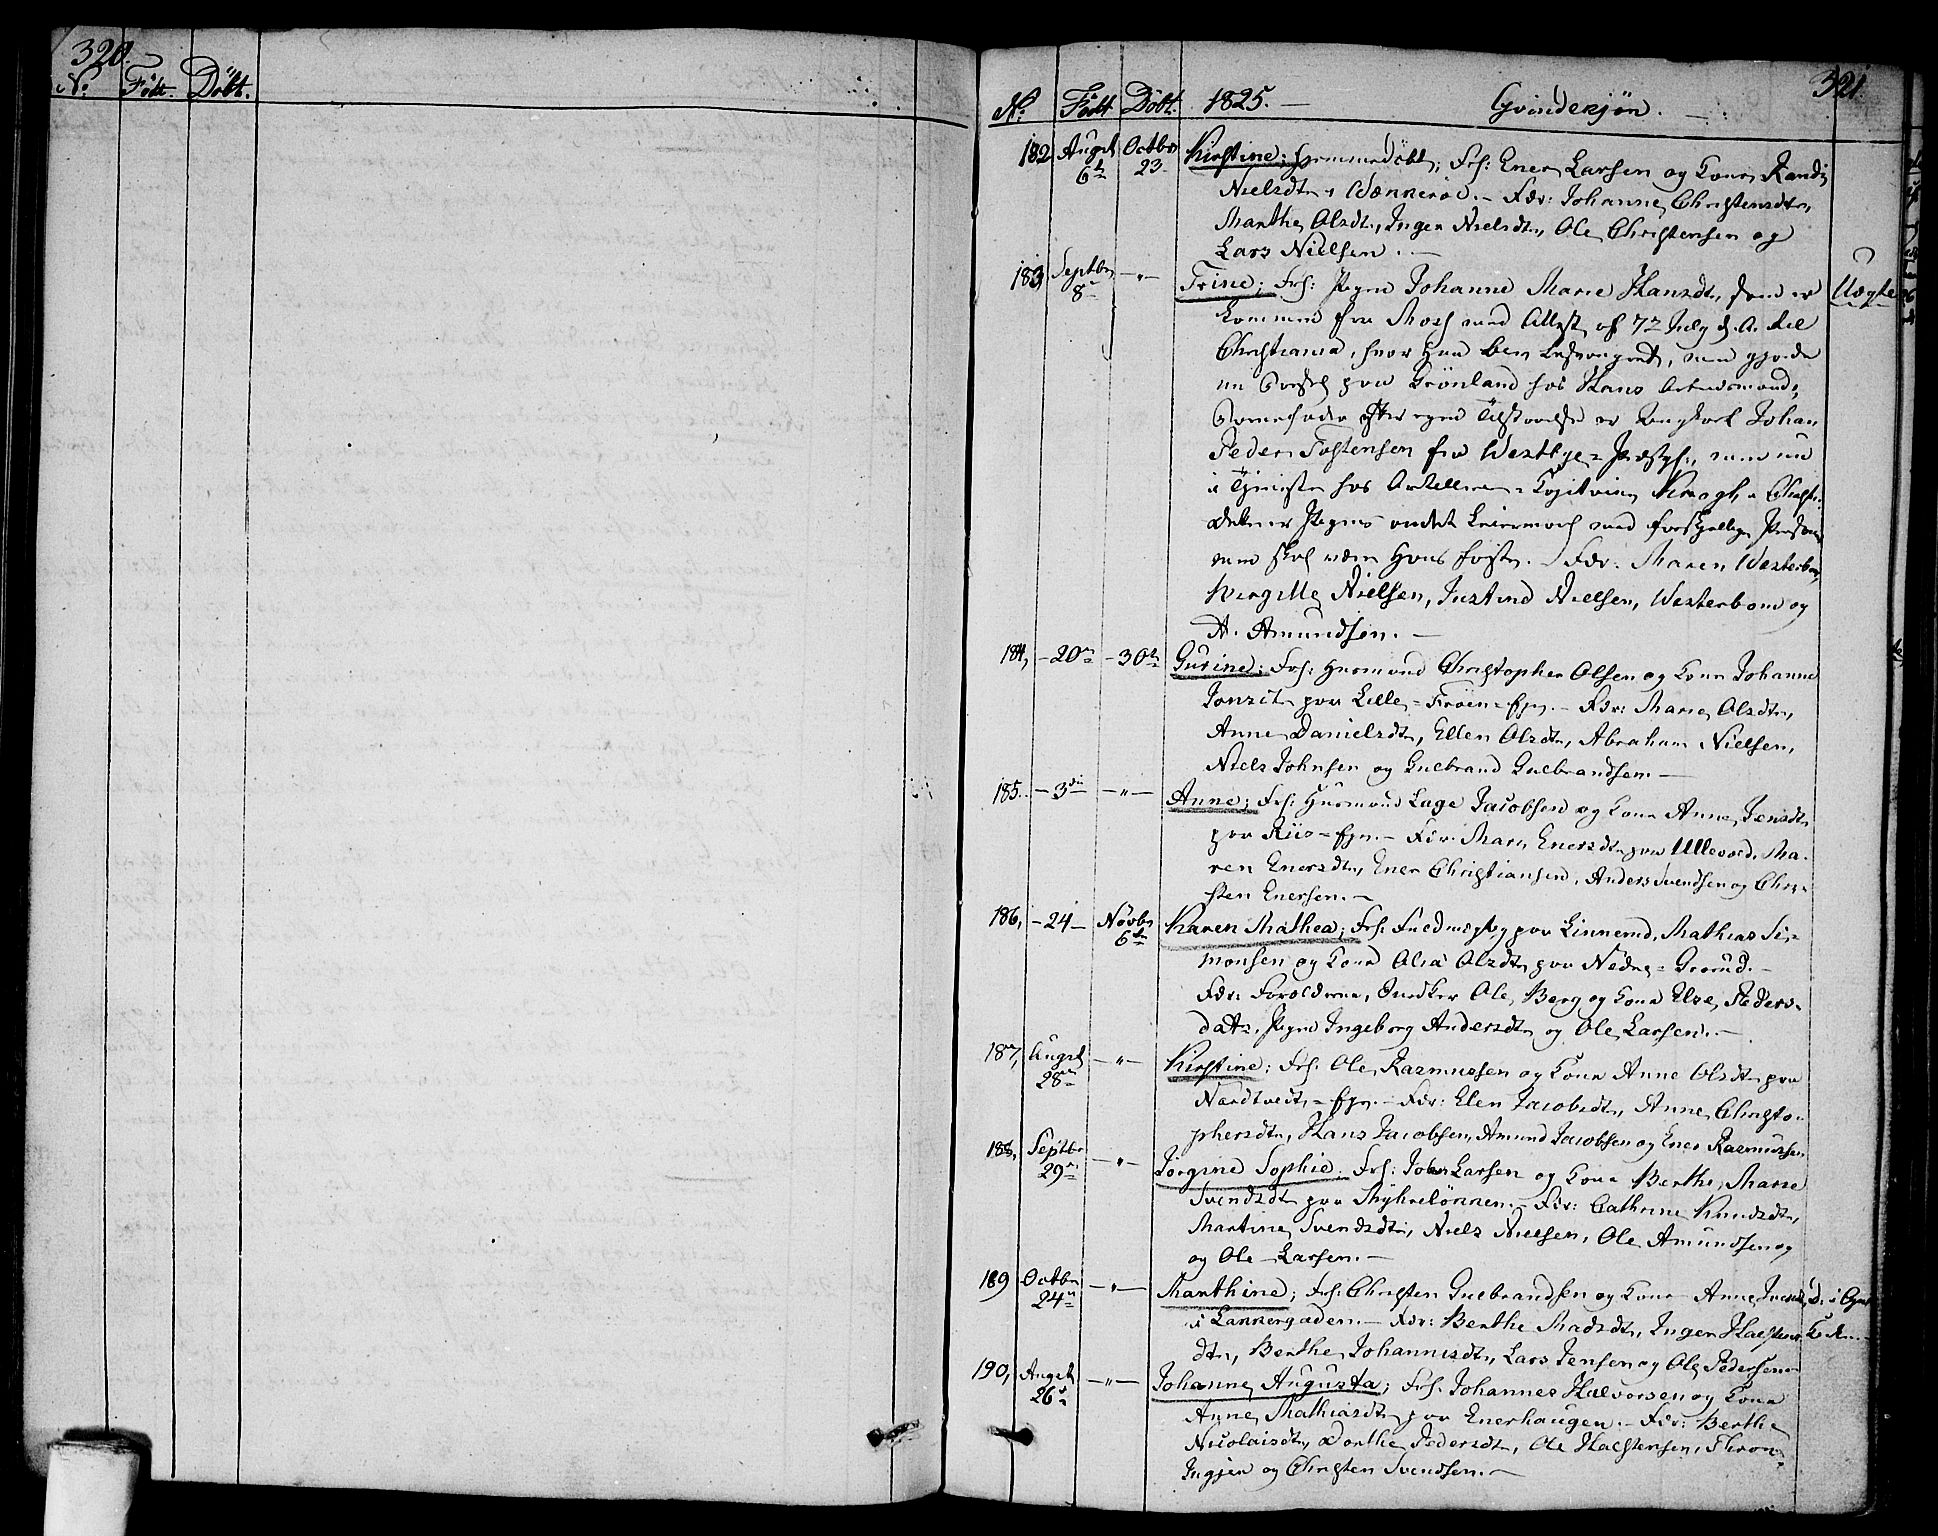 320.
No. Född. Döbt.
321
No. Född Döbt. 1825. — Qvindekjøn. —
182 Augst 6te Octbr 23. Kirstine; hjemmedöbt; Frs: Ener Larsen og Kone Randi
Nielsdtr i Wænnerød. — Fdr: Johanne Christensdtr,
Marthe Olsdtr, Inger Nielsdtr, Ole Christensen og
Lars Nielsen. —
183, Septbr 8de —"— Trine; Frs: Pigen Johanne Marie Hansdtr, som er Uægte
kommen fra Moss med Attest af 72 July d. A. til
Christiania, hvor hun blev besvangret, men gjorde
sin Barsel paa Grönland hos Hans Arbeidsmand;
Barnefader efter egen Tilstaaelse er Ungkarl Johan
Peder Tostensen fra Westbye = Præstgj:, som nu
i Tjeneste hos Artillerie = Capitain Krogh i Christ:
Dette er Pigens andet Leiermaal med forskjellige Personer
men skal være hans første. — Fdr: Maren Westerbom,
Birgitte Nielsen, Justine Nielsen, Westerbom og
A. Amundsen. —
184, — 20de — 30te Gurine; Frs: Huusmand Christopher Olsen og Kone Johanne
Jonsdtr paa Lille = Fröen = Ejer. — Fdr: Marie Olsdtr,
Anne Danielsdtr, Ellen Olsdtr, Abraham Nielsen,
Niels Johnsen og Gulbrand Gulbrandsen. —
185. — 3die —"— Anne; Frs: Huusmand Lage Jacobsen og Kone Anne Jensdtr
paa Riis = Ejer. — Fdr: Mari Enersdtr paa Ullevold, Ma-
ren Enersdtr, Ener Christiansen, Anders Svendsen og Chri-
sten Enersen. —
186, — 24 — Novbr 6te Karen Mathea; Frs: paa Linnerud, Mathias Si-
monsen og Kone Olia Olsdtr paa Nedre = Grorud. —
Fdr: Forældrene, Ole Berg og Kone Else Peders-
datr, Pigen Ingeborg Andersdtr og Ole Larsen. —
187, Augst 28de —"— Kirstine; Frs: Ole Rasmussen og Kone Anne Olsdtr paa
Nordtvedt = Ejer. — Fdr: Elen Jacobsdtr, Anne Christo-
phersdtr, Hans Jacobsen, Amund Jacobsen og Ener Rasmussen
188, Septbr 29de —"— Jörgine Sophie; Frs: John Larsen og Kone Berthe Marie
Svendsdtr paa Myhrelönnen. — Fdr: Cathrine Knudsdtr,
Martine Svendsdtr, Niels Nielsen, Ole Amundsen og
og Ole Larsen. —
189 Octbr 24de —"— Marthine; Frs: Christen Gulbrandsen og Kone Anne
i Lakkergaden. — Fdr: Berthe Madsdtr, Inger Halstens-
dtr, Berthe Johannisdtr, Lars Jensen og Ole Pedersen
190, Augst 26de —"— Johanne Augusta; Frs: Johannes Halvorsen og Kone
Anne Mathiasdtr paa Enerhaugen. — Fdr: Berthe
Nicolaisdtr, Dorthe Pedersdtr, Ole Halstensen, Thron
Ingjer og Christen Svendsen. —